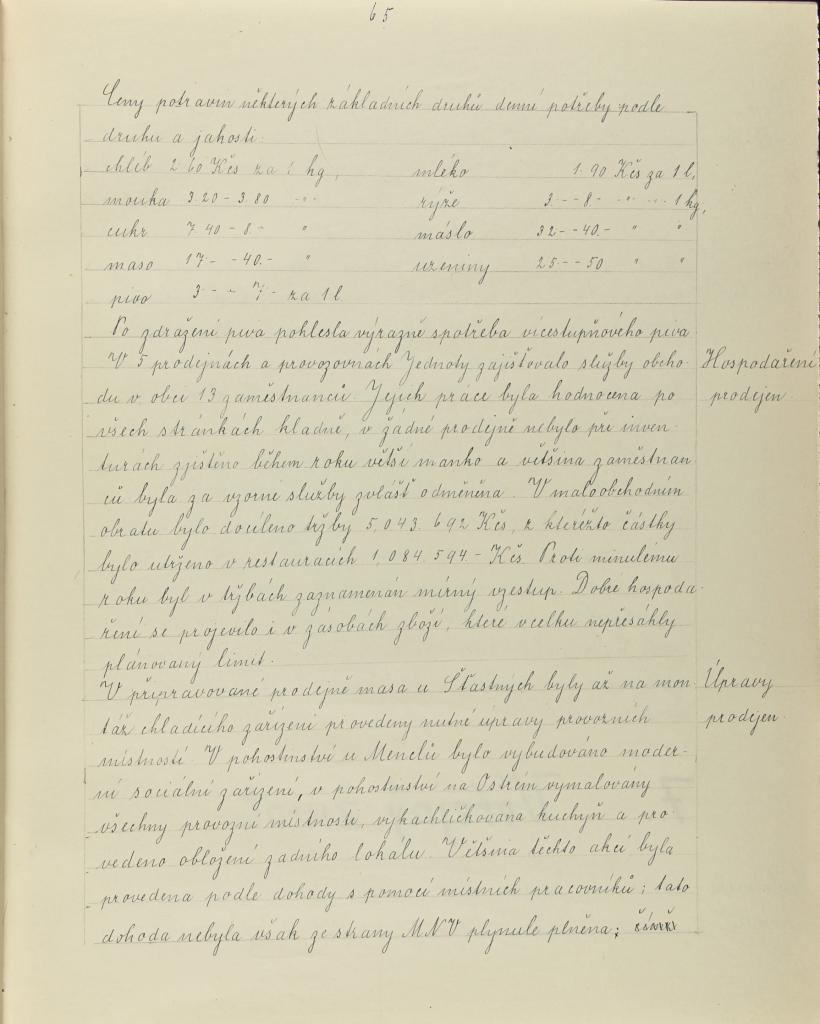 65
Ceny potravin některých základních druhů denní potřeby podle
druhu a jakosti.
chléb 2 60 Kčs za 1 kg, mléko 1.90 Kčs za 1 l,
mouka 3 20 - 3.80 " rýže 3.- - 8.- " 1 kg,
cukr 7 40 - 8 - " máslo 32.- - 40.- " "
maso 17.- - 40.- " uzeniny 25.- - 50 " "
pivo 3 - - 7 - za 1 l
Po zdražení piva poklesla výrazně spotřeba vícestupňového piva
V 5 prodejnách a provozovnách Jednoty zajišťovalo služby obcho-
Hospodaření
du v obci 13 zaměstnanců. Jejich práce byla hodnocena po
prodejen
všech stránkách kladně, v žádné prodejně nebylo při inven-
turách zjištěno během roku větší manko a většina zaměstnan
ců byla za vzorné služby zvlášť odměněna. V maloobchodním
obratu bylo docíleno tržby 5,043.692 Kčs, z kteréžto částky
bylo utrženo v restauracích 1,084.594.- Kčs. Proti minulému
roku byl v tržbách zaznamenán mírný vzestup. Dobré hospoda-
ření se projevilo i v zásobách zboží, které vcelku nepřesáhly
plánovaný limit.
V připravované prodejně masa u Šťastných byly až na mon-
Úpravy
táž chladícího zařízení provedeny nutné úpravy provozních
prodejen.
místností. V pohostinství u Menclů bylo vybudováno moder-
ní sociální zařízení, v pohostinství na Ostrém vymalovány
všechny provozní místnosti, vykachlíčkována kuchyň a pro-
vedeno obložení zadního lokálu. Většina těchto akcí byla
provedena podle dohody s pomocí místních pracovníků; tato
dohoda nebyla však ze strany MNV plynule plněna;